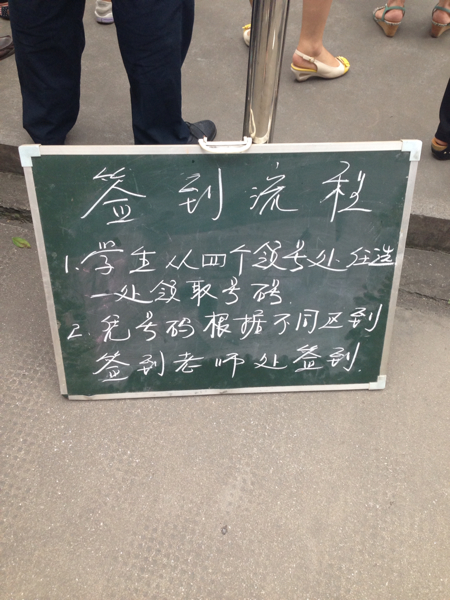 签到流程
1. 学生从四个领号处任选
一处领取号码.
2. 凭号码根据不同区到
签到老师处签到.